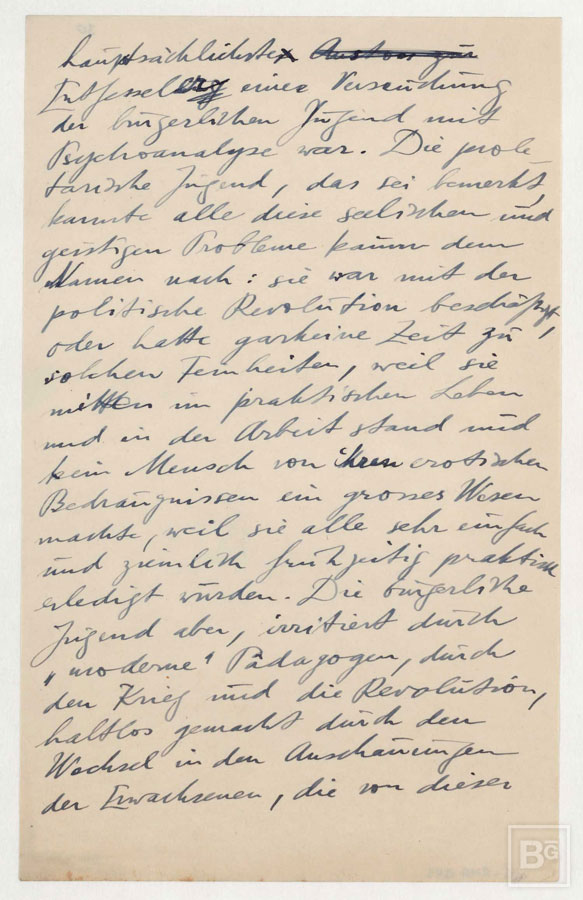 hauptsächlichste Anstoss zur
Entfesselung einer Verseuchung
der bürgerlichen Jugend mit
Psychoanalyse war. Die prole-
tarische Jugend, das sei bemerkt,
kannte alle diese seelischen und
geistigen Probleme kaum dem
Namen nach: sie war mit der
politische Revolution beschäftigt,
oder hatte garkeine Zeit zu
solchen Feinheiten, weil sie
mitten im praktischen Leben
und in der Arbeit stand und
kein Mensch von ihren erotischen
Bedrängnissen ein grosses Wesen
machte, weil sie alle sehr einfach
und ziemlich frühzeitig praktisch
erledigt wurden. Die bürgerliche
Jugend aber, irritiert durch
„moderne" Pädagogen, durch
den Krieg und die Revolution,
haltlos gemacht durch den
Wechsel in den Anschauungen
der Erwachsenen, die von dieser
BG